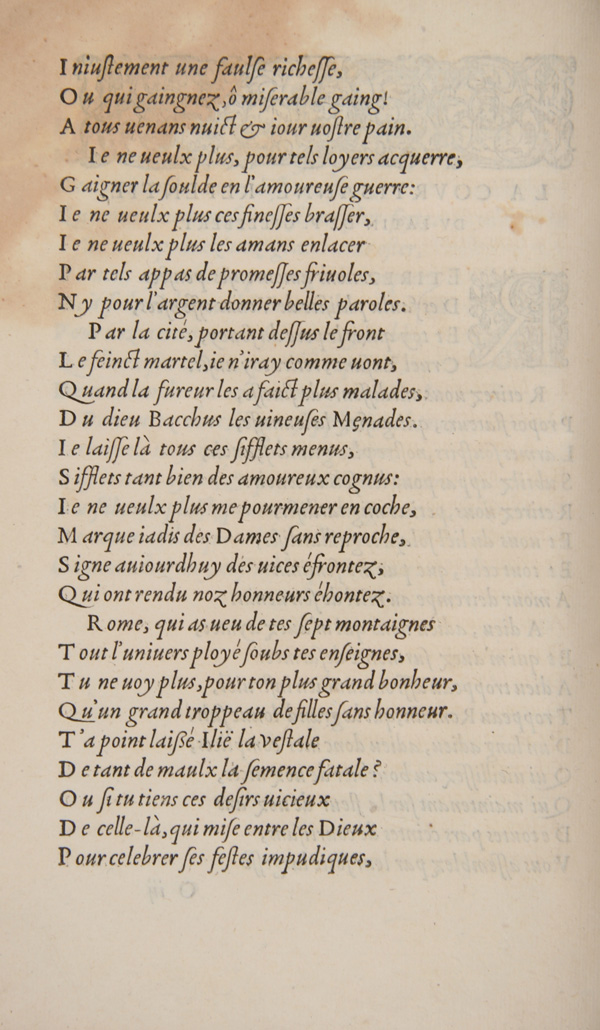 Iniuſtement une faulſe richeſſe,
Ou qui gaingnez, ô miſerable gaing!
A tous uenans nuict & iour uoſtre pain.
Ie ne ueulx plus, pour tels loyers acquerre,
Gaigner la ſoulde en l'amoureuſe guerre:
Ie ne ueulx plus ces fineſſes braſſer,
Ie ne ueulx plus les amans enlacer
Par tels appas de promeſſes friuoles,
Ny pour l'argent donner belles paroles.
Par la cité, portant deſſus le front
Le feinct martel, ie n'iray comme uont,
Quand la fureur les a faict plus malades,
Du dieu Bacchus les uineuſes Męnades.
Ie laiſſe là tous ces ſifflets menus,
Sifflets tant bien des amoureux cognus:
Ie ne ueulx plus me pourmener en coche,
Marque iadis des Dames ſans reproche,
Signe auiourdhuy des uices éfrontez,
Qui ont rendu noz honneurs éhontez.
Rome, qui as ueu de tes ſept montaignes
Tout l'uniuers ployé ſoubs tes enſeignes,
Tu ne uoy plus, pour ton plus grand bonheur,
Qu'un grand troppeau de filles ſans honneur.
T'a point laißé Ilië la veſtale
De tant de maulx la ſemence fatale?
Ou ſi tu tiens ces deſirs uicieux
De celle-là, qui miſe entre les Dieux
Pour celebrer ſes feſtes impudiques,